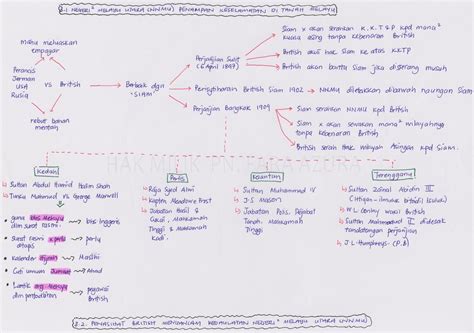 8.1 NEGERI² MELAYU UTARA (NNMU) PENAMPAN KESELAMATAN DI TANAH MELAYU
Mahu meluaskan
empayar
Perancis
Jerman
USA
Rusia
vs British
rebut bahan
mentah
Berbaik dgn
"SIAM"
Perjanjian Sulit
(6 April 1897)
Siam x akan serahkan K.K.T&P kpd mana²
kuasa asing tanpa kebenaran British
British akui hak Siam ke atas KKTP
British akan bantu Siam jika diserang musuh
Perisytiharan British Siam 1902 → NNMU diletakkan dibawah naungan Siam
Perjanjian Bangkok 1909
Siam serahkan NNMU kpd British
Siam x akan sewakan mana² wilayahnya
tanpa kebenaran British
British serah hak wilayah Asingan kpd Siam.
HAK MILIK PN. FARA AZURA
Kedah
Sultan Abdul Hamid Halim Shah
Tunku Mahmud vs George Maxwell
guna bhs Melayu
dlm surat rasmi.
bhs Inggeris
Surat rasmi x perlu
setem
perlu
Kalendar Hijrah → Masihi
Cuti umum Jumaat → Ahad
Lantik org Melayu
dlm pentadbiran
pegawai
British
Perlis
Raja Syed Alwi
Kapten Meadows Frost
Jabatan Hasil &
Cukai, Mahkamah
Tinggi & Mahkamah
Kadi.
Kelantan
Sultan Muhammad IV
J.S. Mason
Jabatan Polis, Pejabat
Tanah, Mahkamah
Tinggi
Terengganu
Sultan Zainal Abidin III
W.L. Conlay wakil British
Sultan Muhammad II didesak
tandatangan perjanjian
J.L. Humphreys (P.B)
8.2. PENASIHAT BRITISH MENGANCAM KEDAULATAN NEGERI² MELAYU UTARA (NNMU)